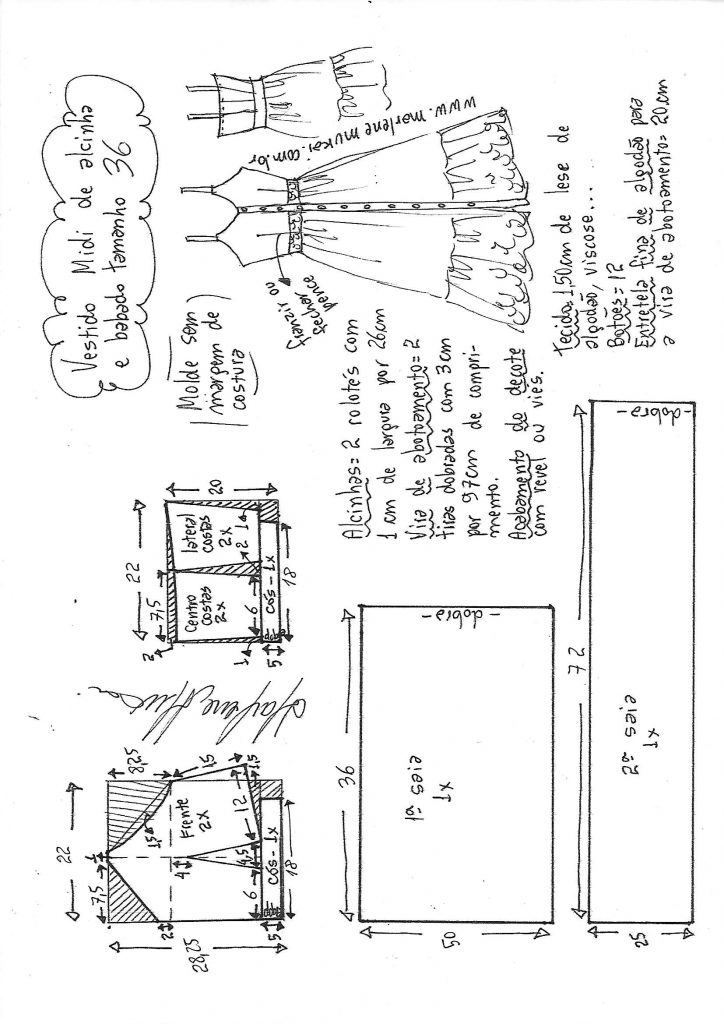 Vestido Midi de alcinha
e babado tamanho 36
Molde sem
margem de
costura
franzir ou
fechar
pence
www.marlenemukai.com.br
22
7,5
1
8,25
15
1,5
Frente
2X
2
4
1,5
12
1,5
28,25
6
cós - 1x
5
18
22
7,5
2
20
Centro
costas
2x
lateral
costas
2x
2
1
1
6
cós - 1x
5
18
Alcinhas = 2 rolotês com
1 cm de largura por 26cm
Vira de abotoamento = 2
tiras dobradas com 3cm
por 97cm de compri-
mento.
Acabamento do decote
com revel ou viés.
Tecido = 1,50cm de lese de
algodão, viscose...
Botões = 12
Entretela fina de algodão para
a vira de abotoamento = 20cm
36
1ª saia
1x
- dobra -
50
72
2ª saia
1x
- dobra -
25